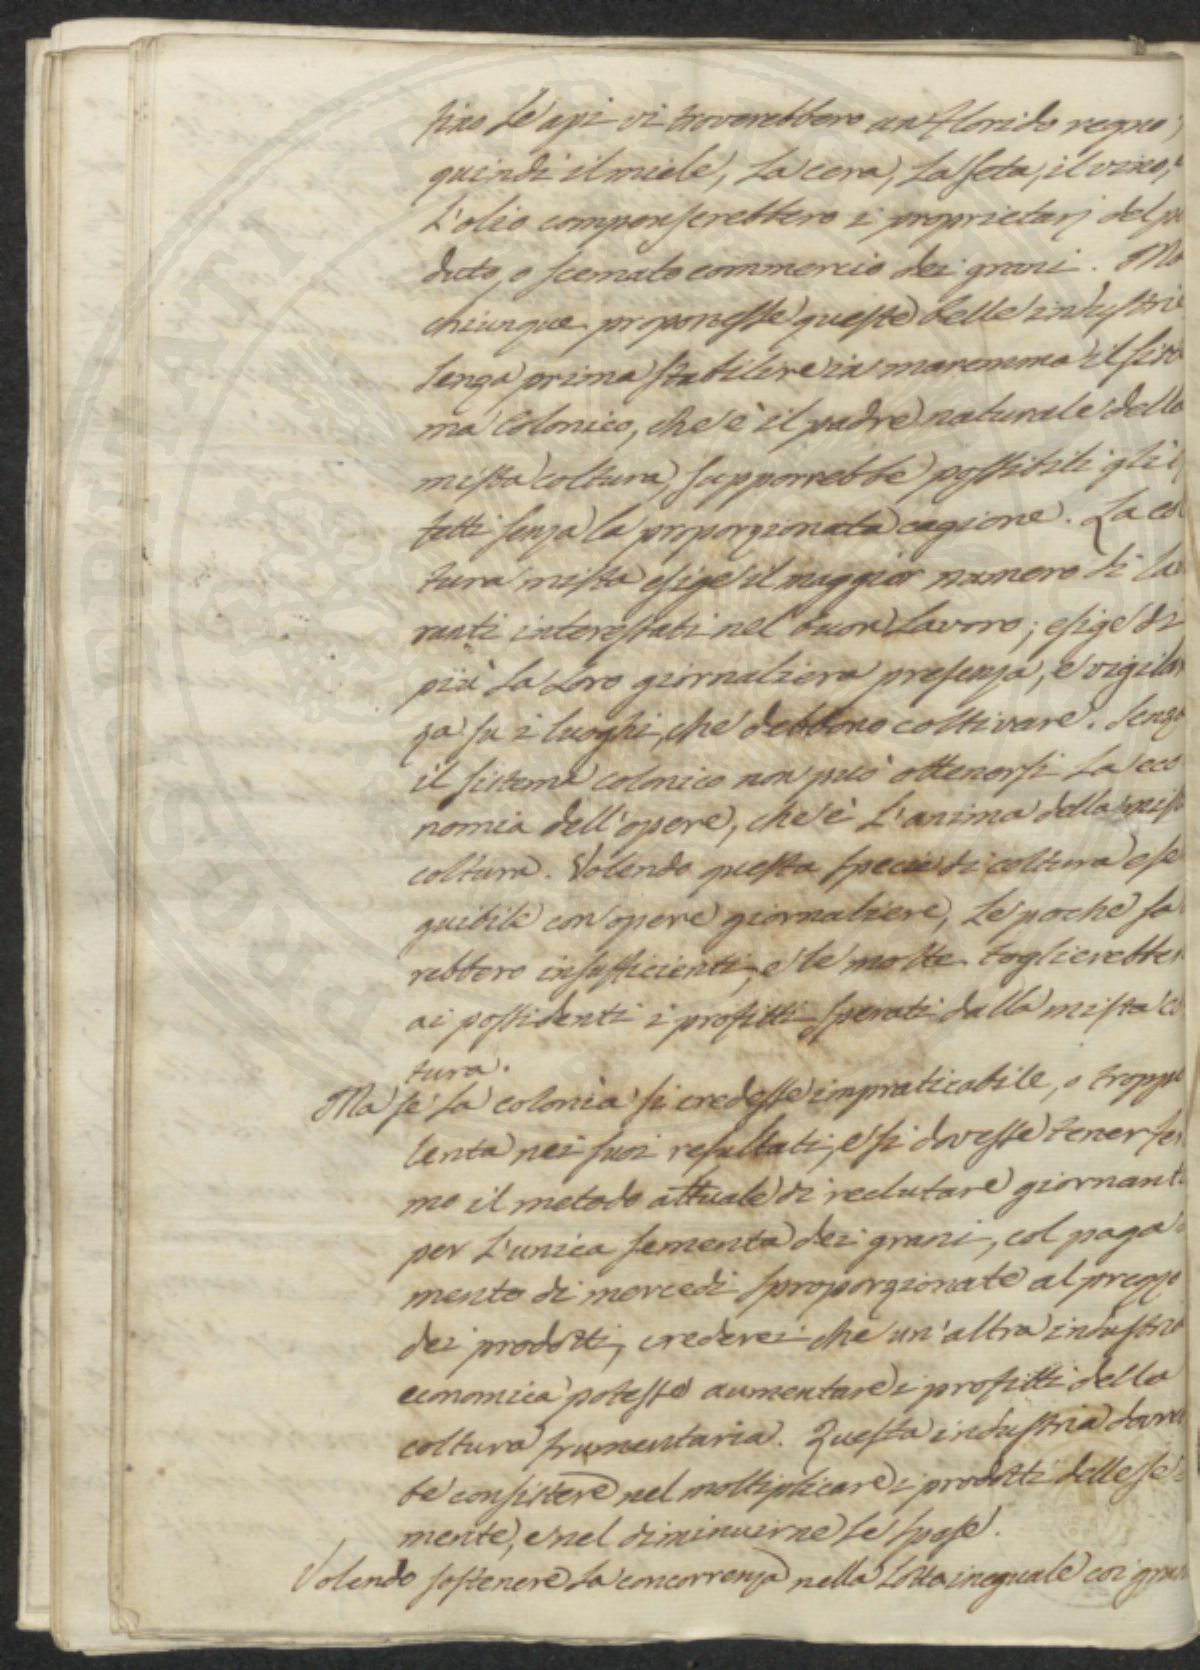 fino le api vi troverebbero un florido regno;
quindi il miele, la cera, la seta, il vino, e
l'olio compenserebbero i proprietarj del per
duto, o scemato commercio dei grani. Ma
chiunque proponesse queste belle industrie
senza prima stabilire in maremma il siste
ma Colonico, che è il padre naturale della
mista coltura, supporrebbe possibili gli ef
fetti senza la proporzionata cagione. La col
tura mista esige il maggior numero di lavo
ranti interessati nel buon lavoro; esige di
più la loro giornaliera presenza, e vigilan
za su i luoghi, che debbono coltivare. Senza
il sistema colonico non può ottenersi la eco
nomia dell'opere, che è l'anima della mista
coltura. Volendo questa specie di coltura ese
guibile con opere giornaliere, le poche sa
rebbero insufficienti, e le molte toglierebber
ai possidenti i profitti sperati dalla mista col
tura.
Ma se la colonìa si credesse impraticabile, o troppo
lenta nei suoi resultati, e si dovesse tener fer
mo il metodo attuale di reclutare giornanti
per l'unica sementa dei grani, col paga
mento di mercedi sproporzionate al prezzo
dei prodotti, crederei che un'altra industria
economica potesse aumentare i profitti della
coltura frumentaria. Questa industria dovreb
be consistere nel moltiplicare i prodotti delle se
mente, e nel diminuirne le spese.
Volendo sostenere la concorrenza nella lotta ineguale coi grani
PROPRIETATI PVBLIC